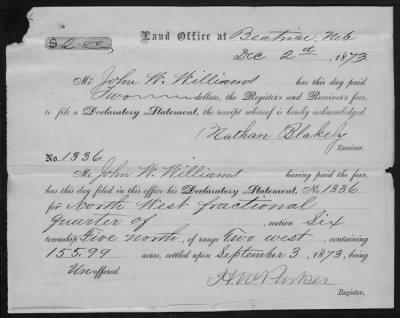 $2.00
Land Office at Beatrice, Neb
Dec 2d, 1873
Mr. John W. Williams has this day paid
Two dollars, the Register's and Receiver's fees,
to file a Declaratory Statement, the receipt whereof is hereby acknowledged.
Nathan Blakely
Receiver.
No. 1336
Mr. John W. Williams having paid the fees,
has this day filed in this office his Declaratory Statement, No. 1336
for North West fractional
quarter of, section Six
township Five north, of range Two west, containing
155.99 acres, settled upon September 3, 1873, being
Un offered.
H W Parker
Register.